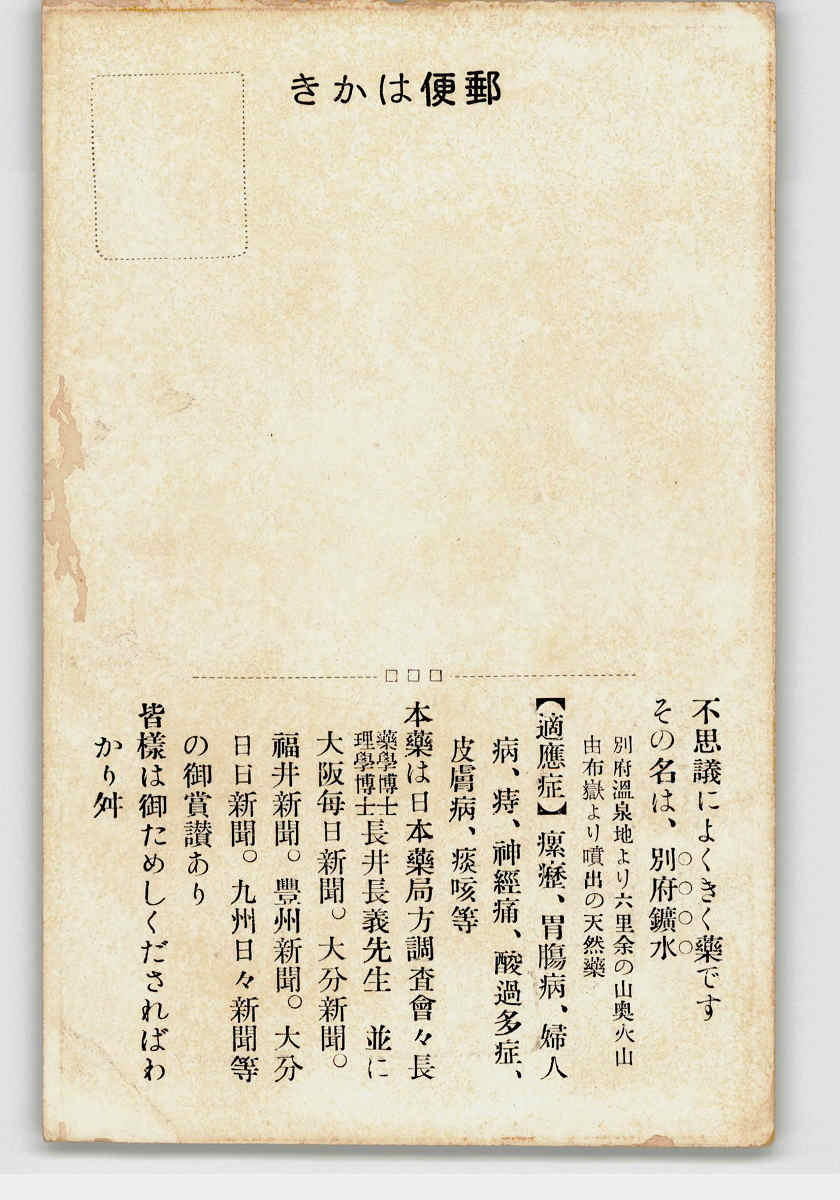 郵便はかき
不思議によくきく藥です
その名は、別府鑛水
別府溫泉地より六里余の山奧火山
由布嶽より噴出の天然藥
【適應症】瘰癧、胃膓病、婦人
病、痔、神經痛、酸過多症、
皮膚病、痰咳等
本藥は日本藥局方調査會々長
藥學博士
理學博士長井長義先生 並に
大阪每日新聞。大分新聞。
福井新聞。豐州新聞。大分
日日新聞。九州日々新聞等
の御賞讃あり
皆樣は御ためしくださればわ
かり舛